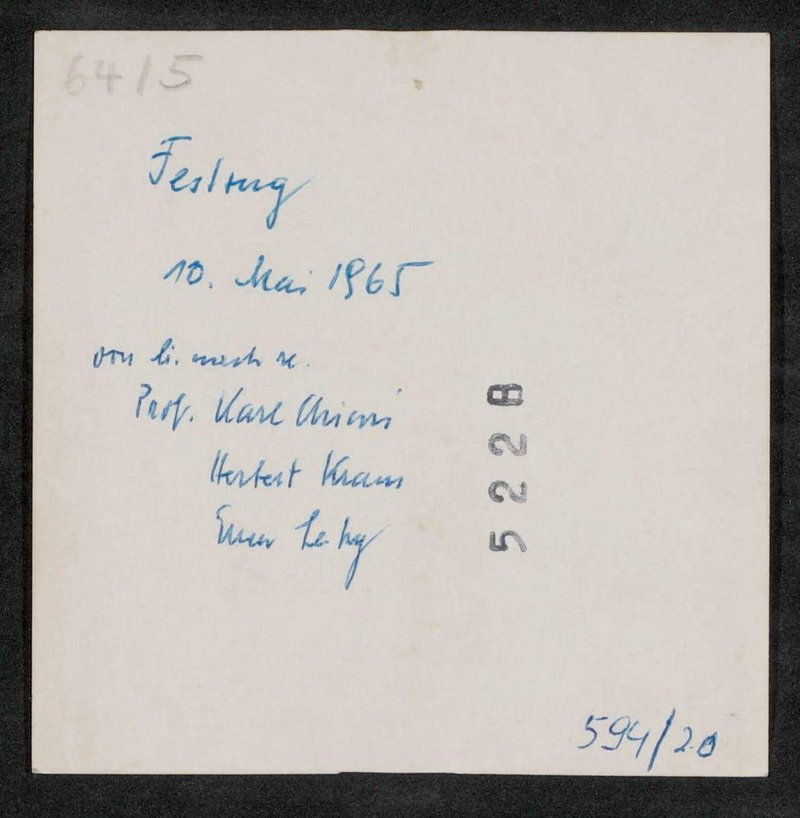 6415
Festung
10. Mai 1965
von li. nach re.
Prof. Karl Chiari
Herbert Kraus
5228
594/20